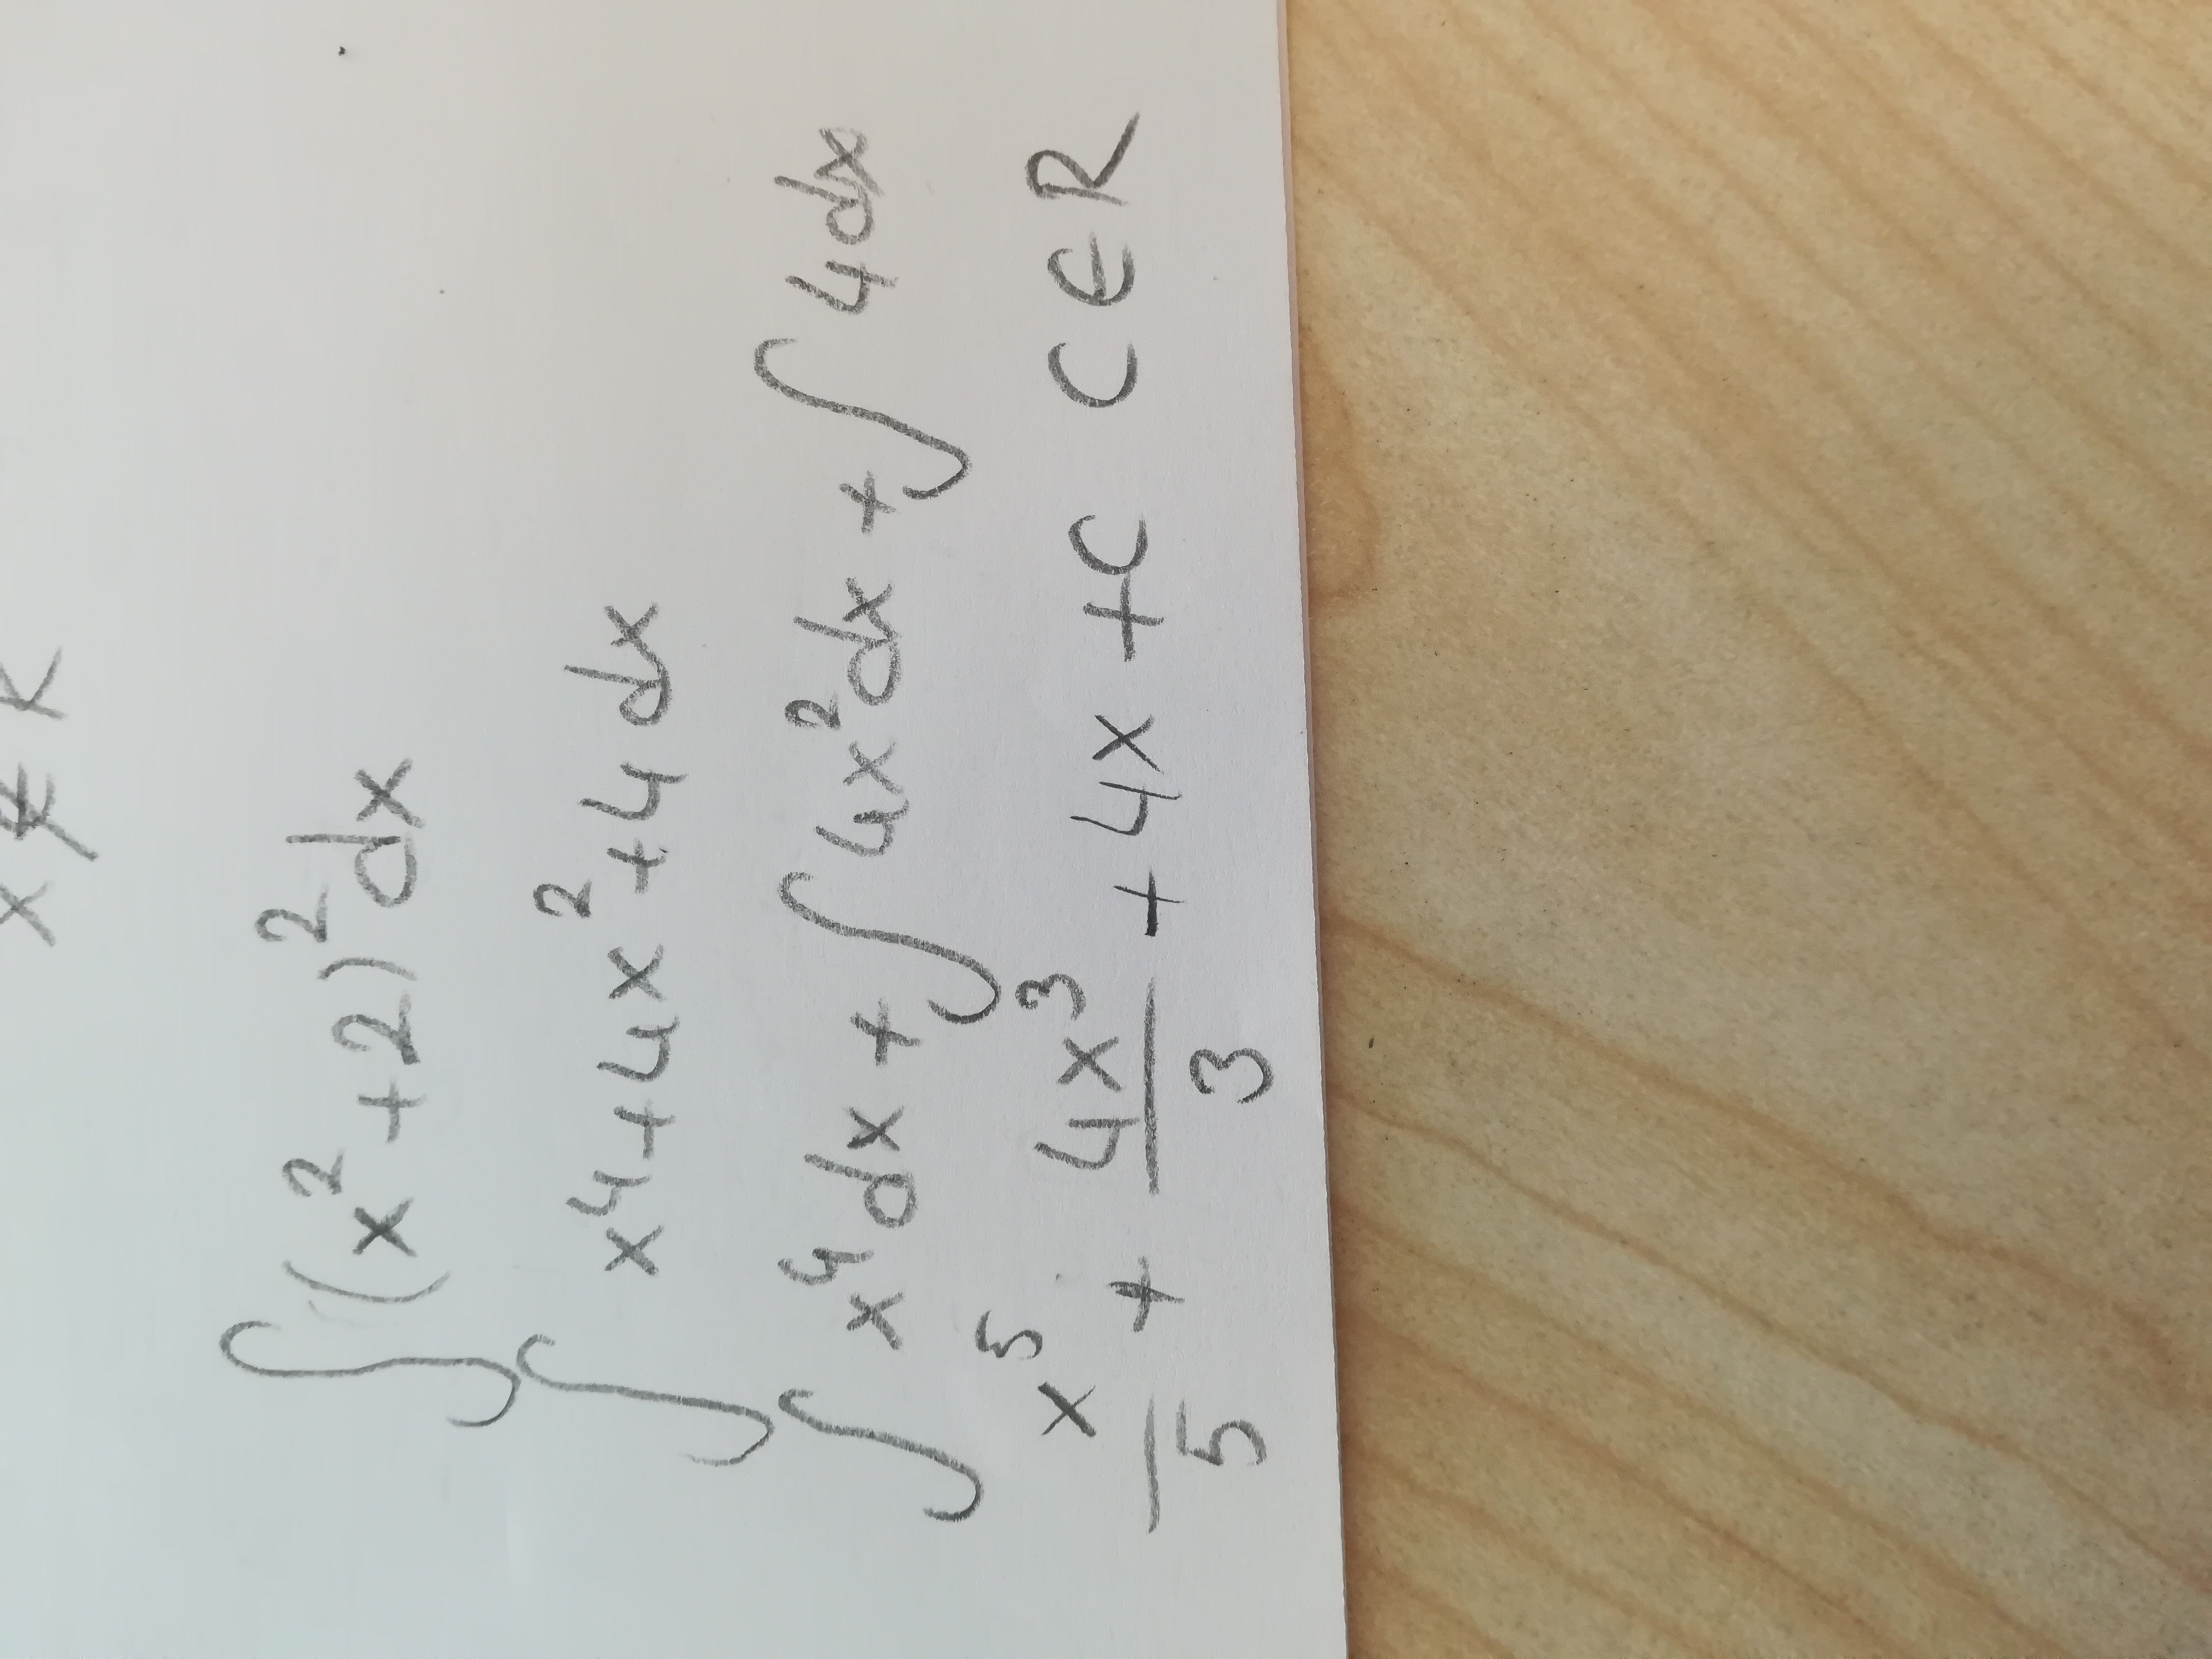 x ∉ R
∫(x²+2)² dx
∫ x⁴+4x²+4 dx
∫ x⁴dx + ∫ 4x²dx + ∫ 4dx
x⁵/5 + 4x³/3 + 4x + C C ∈ R